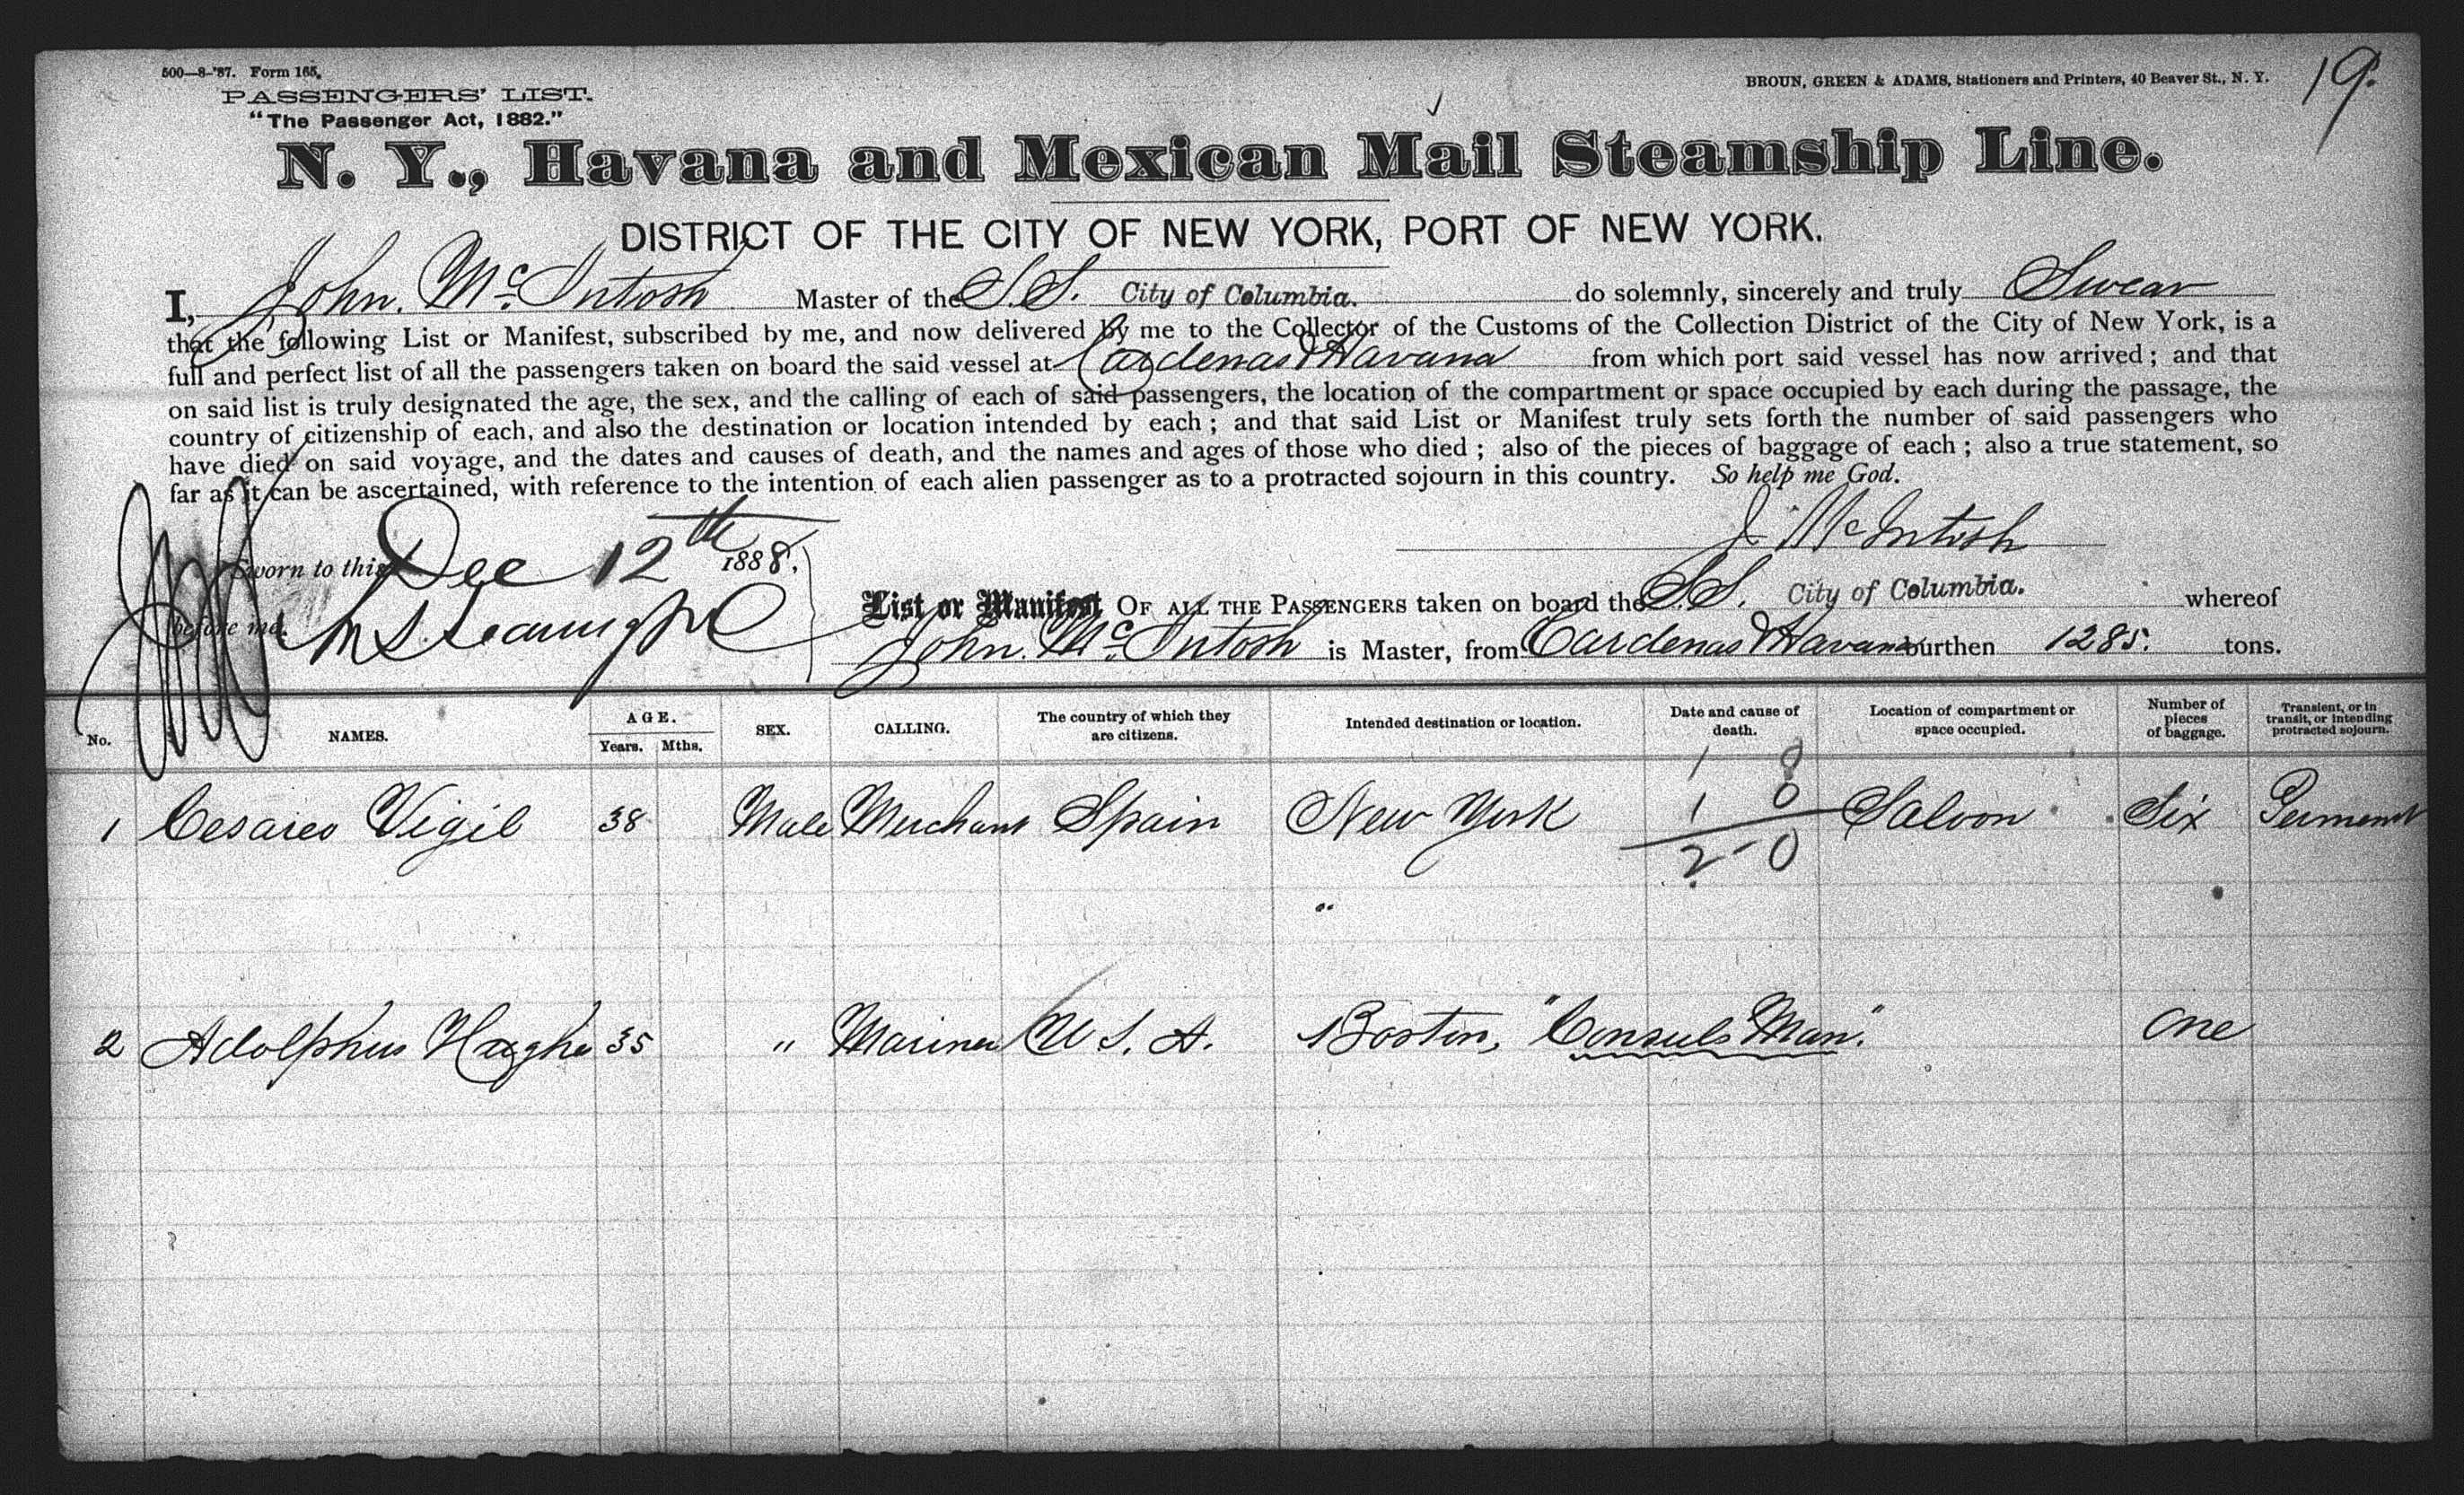 500—8-'87. Form 165.
BROUN, GREEN & ADAMS, Stationers and Printers, 40 Beaver St., N. Y.
19.
PASSENGERS' LIST.
"The Passenger Act, 1882."
N. Y., Havana and Mexican Mail Steamship Line.
DISTRICT OF THE CITY OF NEW YORK, PORT OF NEW YORK.
I, John. McIntosh Master of the S.S. City of Columbia. do solemnly, sincerely and truly Swear
that the following List or Manifest, subscribed by me, and now delivered by me to the Collector of the Customs of the Collection District of the City of New York, is a
full and perfect list of all the passengers taken on board the said vessel at Cardenas & Havana from which port said vessel has now arrived; and that
on said list is truly designated the age, the sex, and the calling of each of said passengers, the location of the compartment or space occupied by each during the passage, the
country of citizenship of each, and also the destination or location intended by each; and that said List or Manifest truly sets forth the number of said passengers who
have died on said voyage, and the dates and causes of death, and the names and ages of those who died; also of the pieces of baggage of each; also a true statement, so
far as it can be ascertained, with reference to the intention of each alien passenger as to a protracted sojourn in this country. So help me God.
J. McIntosh
Sworn to this Dec 12th 1888.
before me.
List or Manifest OF ALL THE PASSENGERS taken on board the S.S. City of Columbia. whereof
John. McIntosh is Master, from Cardenas & Havana burthen 1285. tons.
No. NAMES. AGE. Years. Mths. SEX. CALLING. The country of which they are citizens. Intended destination or location. Date and cause of death. Location of compartment or space occupied. Number of pieces of baggage. Transient, or in transit, or intending protracted sojourn.
1 8
1 0
2-0
1 Cesareo Vigil 38 Male Merchant Spain New York Saloon Six
2 Adolphus 35 " Mariner U S. A. Boston, "Consuls Man." One